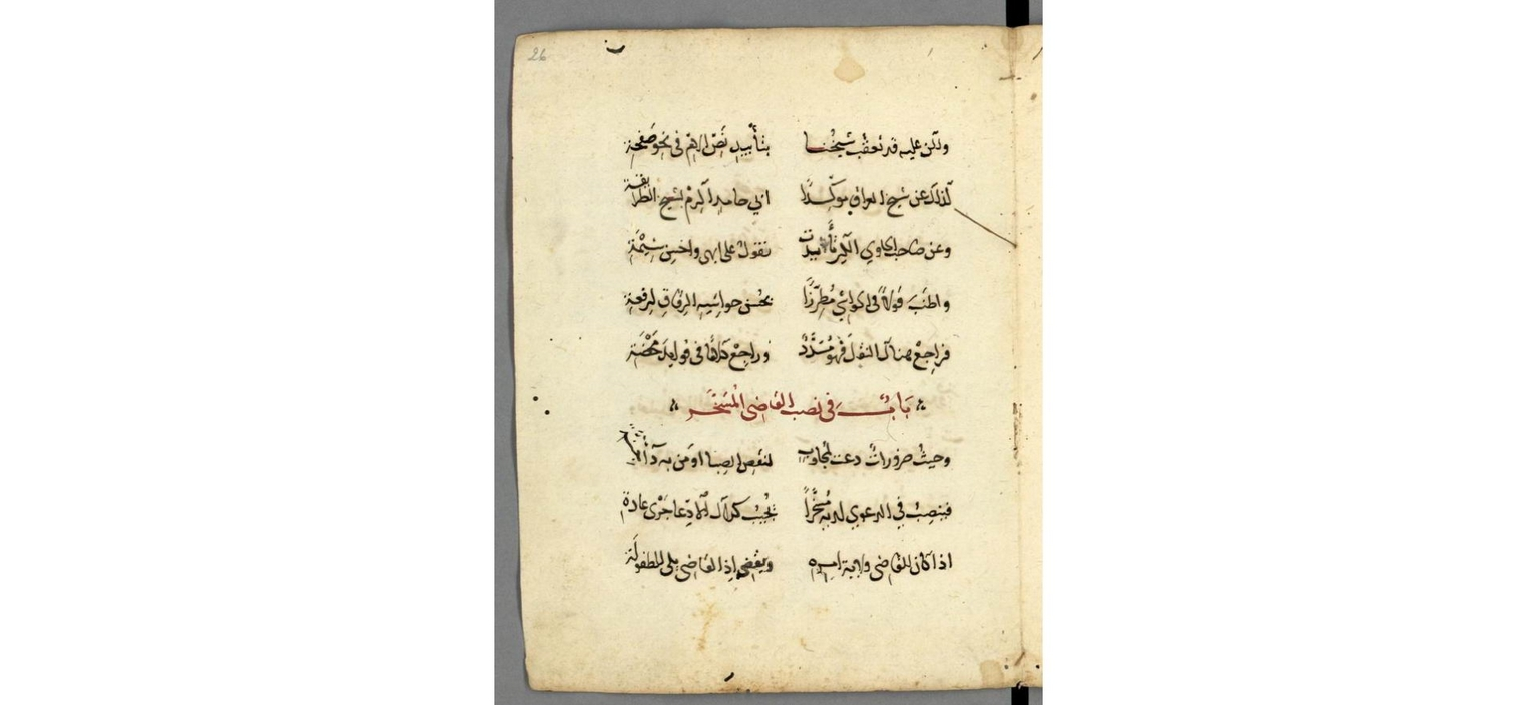 26
ولكن عليه قد تعقب شيخنا بتأييد نص الام في نحو صفحة
كذلك عن شيخ العراق مؤكدا ابي حامد اكرم بشيخ الطريقة
وعن صاحب الحاوي الكبير تأيدت نقول على ابهى واحسن شيمة
واطنب قولا في الحواشي مطرزا بحسن حواشيه الرقاق لرفعة
فراجع هناك النقل فهو مسدد وراجع كلاما في فوايد محضة
باب في نصب القاضي المسخر
وحيث ضرورات دعت لمجاوب لنقص الصبا او من به
فينصب في الدعوي لديه مسخرا يجيب كذاك الادعا جرى عادة
اذا كان للقاضي ولاية امره ويقضي اذا القاضي على الطفولة